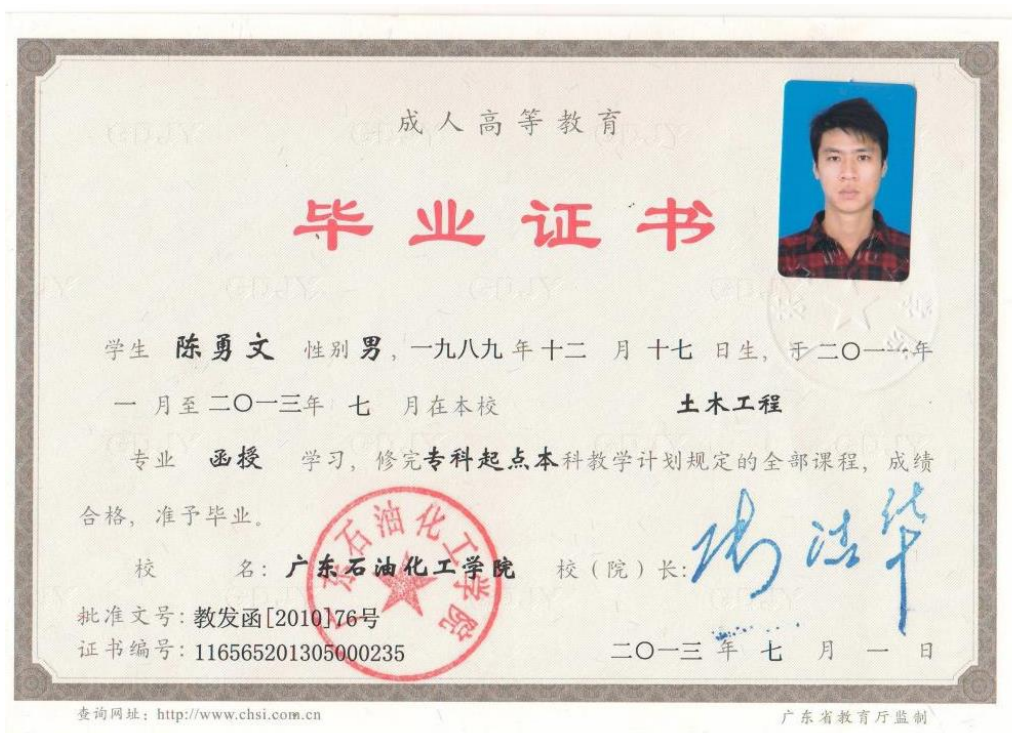 成人高等教育
毕业证书
学生 陈勇文 性别 男，一九八九 年 十二 月 十七 日生，于 二〇一一 年
一 月至 二〇一三年 七 月在本校 土木工程
专业 函授 学习，修完专科起点本科教学计划规定的全部课程，成绩
合格，准予毕业。
校 名：广东石油化工学院 校（院）长：
批准文号：教发函[2010]76号
证书编号：116565201305000235 二〇一三 年 七 月 一 日
广东石油化工学院
查询网址：http://www.chsi.com.cn 广东省教育厅监制